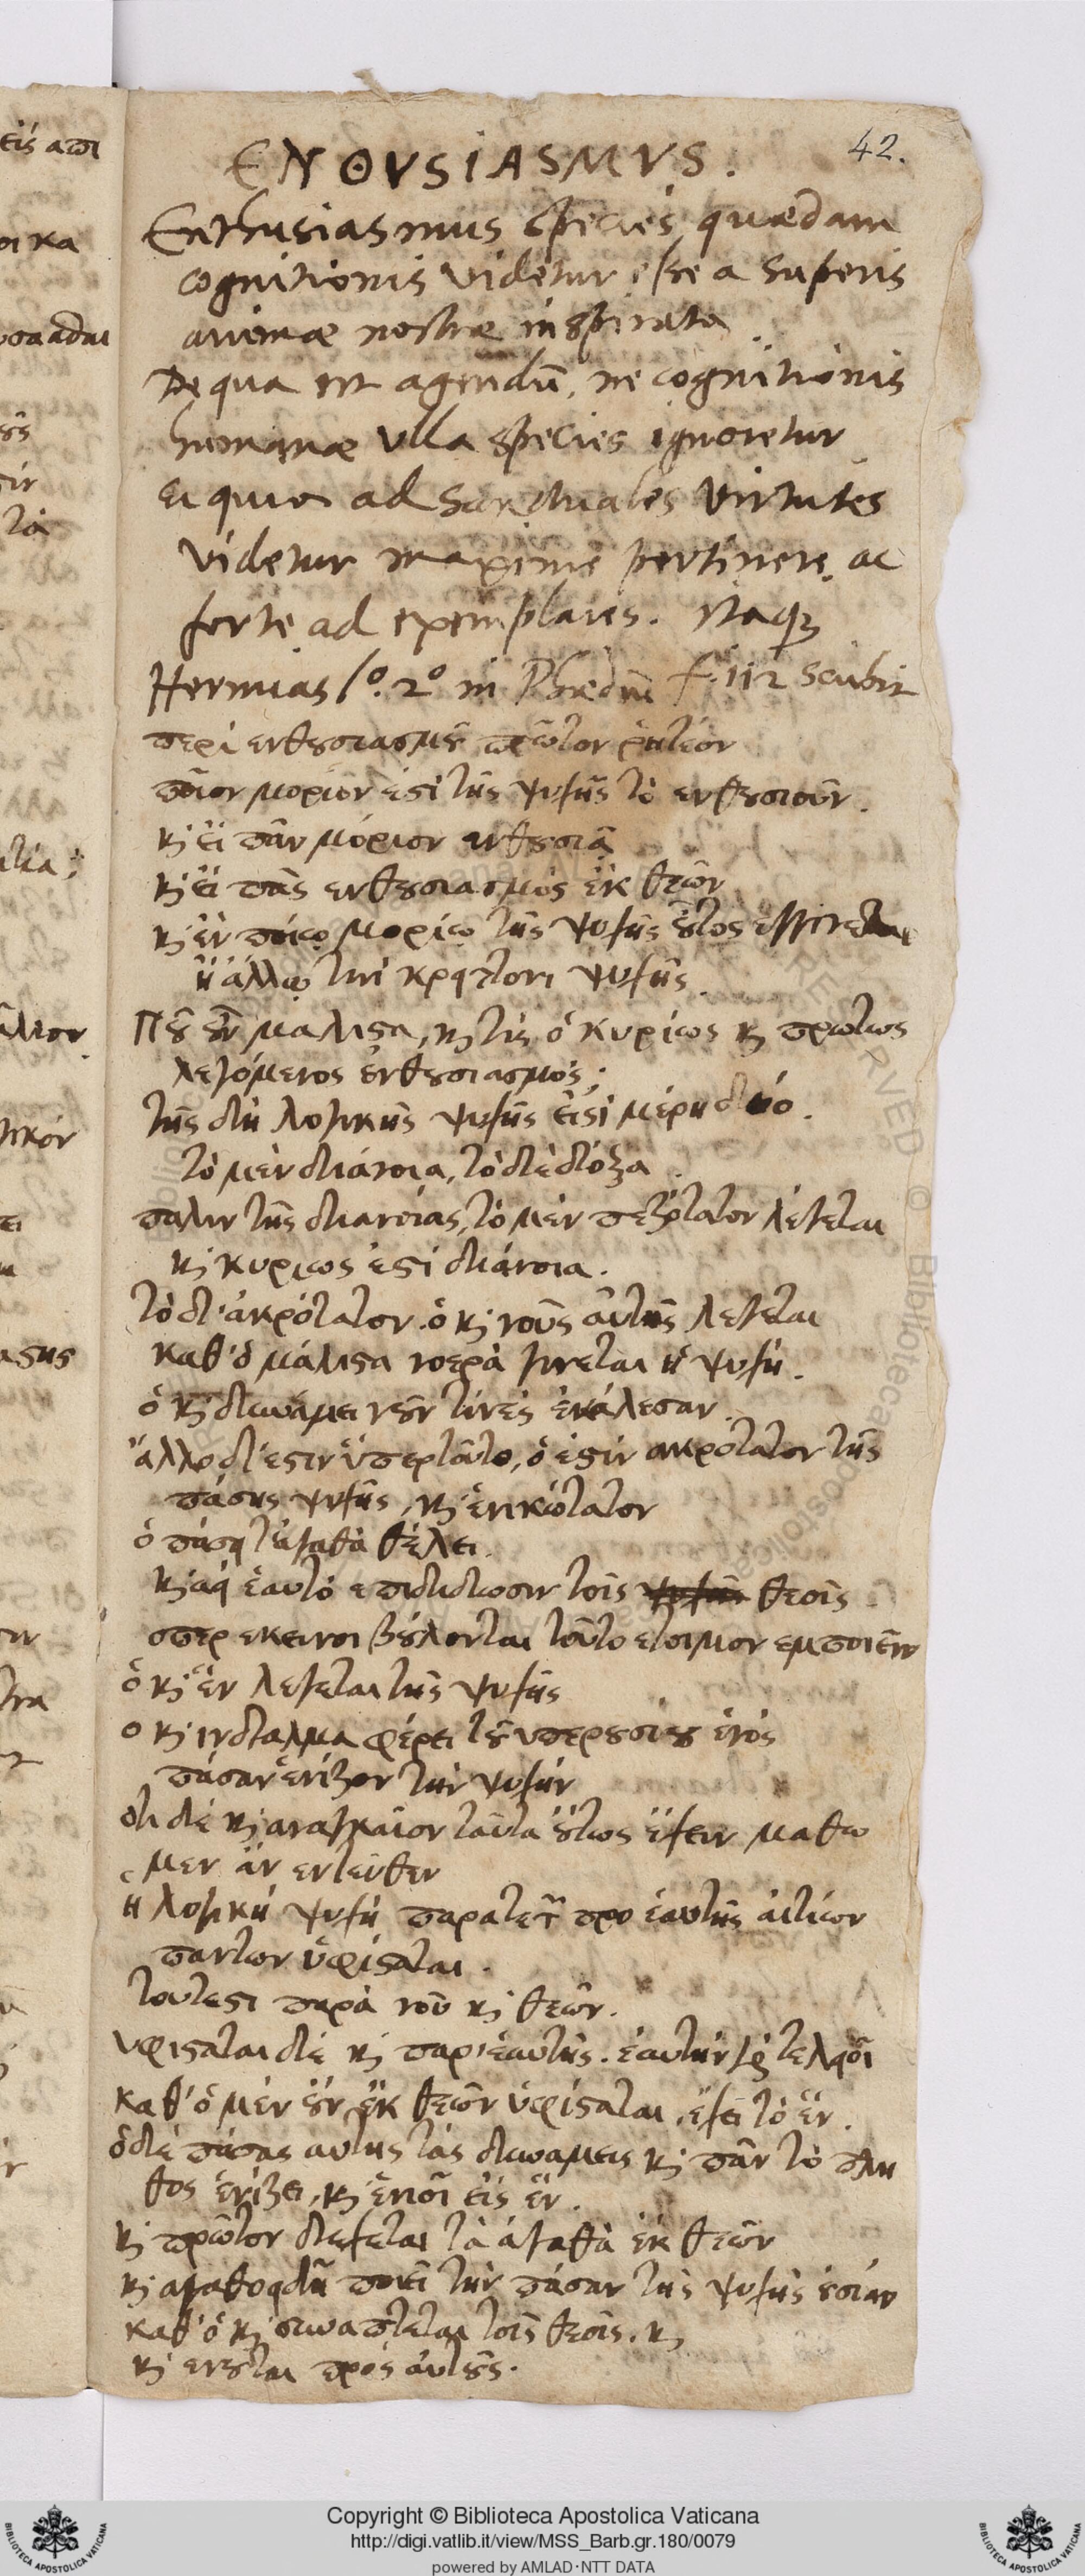 42.
ENΘVSIASMVS.
Enthusiasmus species quædam
cognitionis videtur esse a superis
animæ nostræ inspirata
De qua est agendū, ne cognitionis
humanæ vlla species ignoretur
Et quia ad sanctuales virtutes
videtur maxime pertinere, ac
forte ad exemplares. Itaqȝ
Hermias lº. 2º in Phædrū f. 112 scribit
περὶ ενθουσιασμοῦ πρῶτον ῥητέον
ποῖον μοριόν ἐστὶ τῆς ψυχῆς τὸ ενθουσιοῦν.
κ̀ εἰ πᾶν μόριον ενθουσιᾷ
κ̀ εἰ πᾶς ενθουσιασμὸς ἐκ θεῶν
κ̀ ἐν ποίῳ μορίῳ τῆς ψυχῆς οὗτος εγγινεται
ἢ ἄλλῳ τινὶ κρειττονι ψυχῆς.
Ποῦ οὖν μαλιστα, κ̀ τίς ὁ κυρίως κ̀ πρωτως
λεγόμενος ἐνθουσιασμός;
τῆς δὴ λογικῆς ψυχῆς ἐἰσὶ μέρη δύο.
τὸ μὲν διάνοια, τὸ δὲ δόξα
παλιν τῆς διανοίας, τὸ μὲν πεζότατον λέγεται
κ̀ κυριως ἐστὶ διάνοια.
τὸ δ' ἀκρότατον. ὃ κ̀ νοῦς αὐτῆς λεγεται
καθ' ὃ μάλιστα νοερὰ γινεται ἡ ψυχή.
ὃ κ̀ δυνάμει νοῦν τινὲς ἐκάλεσαν
ἄλλο δ' ἐστιν ὑπερτοῦτο, ὅ ἐστιν ακρότατον τῆς
πάσης ψυχῆς, κ̀ ἑνικώτατον
ὃ πάσῃ τἀγαθὰ θέλει.
κ̀ αεὶ ἑαυτὸ επιδιδωσιν τοῖς θεοῖς
οπερ εκεινοι βούλονται τοῦτο ετοιμον εμποιεῖν
ὃ κ̀ ἓν λεγεται τῆς ψυχῆς
ο κ̀ ινδαλμα φέρει τοῦ υπερουσίου ἑνός
πάσαν ἑνίζον τὴν ψυχήν
ὅτι δὲ κ̀ αναγκαῖον ταῦτα οὕτως ἔχειν μαθω
μεν ἂν εντεῦθεν
ἡ λογικὴ ψυχὴ παρατε τ̃ προ ἑαυτῆς ἀιτίων
παντων ὑφίσταται.
τουτεστι παρὰ νοῦ κ̀ θεῶν.
υφισταται δὲ κ̀ παρ' ἑαυτῆς. ἑαυτὴν γὰρ τελειοῖ
καθ' ὃ μὲν οὖν ἐκ θεῶν ὑφίσταται, ἔχει τὸ ἓν.
ὃ δὲ πάσας αυτης τὰς δυναμεις κ̀ πᾶν τὸ πλη
θος ἑνίζει, κ̀ ἑνιοῖ εἰς ἓν.
κ̀ πρῶτον δεχεται τὰ ἀγαθὰ ἐκ θεῶν
κ̀ αγαθοειδῆ ποιεῖ τὴν πάσαν τῆς ψυχῆς οὐσίαν
καθ' ὃ κ̀ συναπτεται τοῖς θεοῖς. κ̀
κ̀ ενουται προς αὐτούς.
Copyright © Biblioteca Apostolica Vaticana
http://digi.vatlib.it/view/MSS_Barb.gr.180/0079
powered by AMLAD·NTT DATA